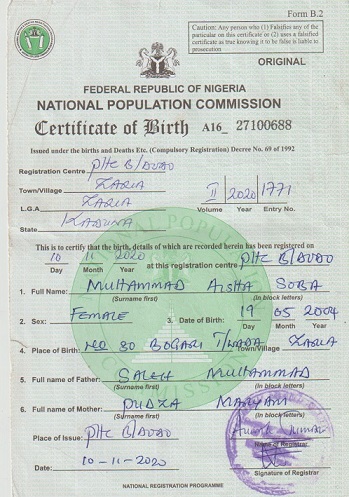 Form B.2
Caution: Any person who (1) Falsifies any of the
particular on this certificate or (2) uses a falsified
certificate as true knowing it to be false is liable to
prosecution
ORIGINAL
FEDERAL REPUBLIC OF NIGERIA
NATIONAL POPULATION COMMISSION
Certificate of Birth A16_ 27100688
Issued under the births and Deaths Etc. (Compulsory Registration) Decree No. 69 of 1992
Registration Centre PHC B/DODO
Town/Village ZARIA II 2020 1771
L.G.A ZARIA Volume Year Entry No.
State KADUNA
This is to certify that the birth, details of which are recorded herein has been registered on
10 11 2020 at this registration centre PHC B/DODO
Day Month Year
1. Full Name: MUHAMMAD AISHA SOBA
(Surname first) (In block letters)
2. Sex: FEMALE 3. Date of Birth: 19 05 2004
Day Month Year
4. Place of Birth: NO 30 Town/Village ZARIA
5. Full name of Father: SALEH MUHAMMAD
(Surname first) (In block letters)
6. Full name of Mother: MARYAM
(Surname first) (In block letters)
Place of Issue: PHC B/DODO
Name of Registrar
Date: 10-11-2020
Signature of Registrar
NATIONAL REGISTRATION PROGRAMME